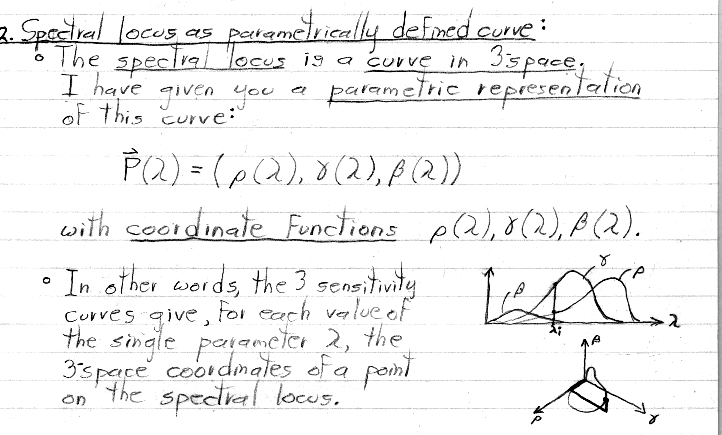 2. Spectral locus as parametrically defined curve:
° The spectral locus is a curve in 3-space.
I have given you a parametric representation
of this curve:
P⃗(λ) = (ρ(λ), γ(λ), β(λ))
with coordinate functions ρ(λ), γ(λ), β(λ).
° In other words, the 3 sensitivity
curves give, for each value of
the single parameter λ, the
3-space coordinates of a point
on the spectral locus.
β γ ρ
λ₁ λ
β
ρ γ